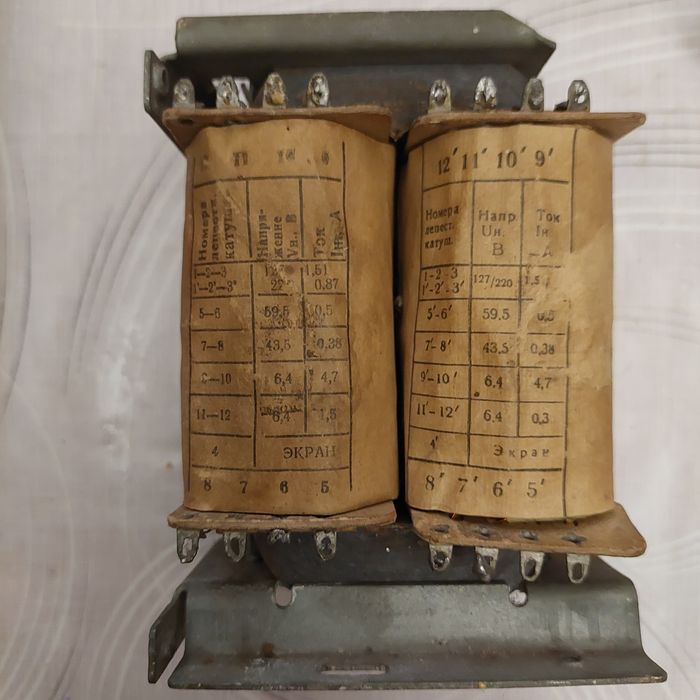 12' 11' 10' 9'
Номера лепестк. катуш.
Напря-
жение
Uн., В
Ток
Iн., А
1—2—3
1,51
1'—2'—3'
0,87
5—6 59,5 0,5
7—8 43,5 0,38
9—10 6,4 4,7
11—12 6,4 1,5
4 ЭКРАН
8 7 6 5
Номера
лепест.
катуш.
Напр.
Uн.
В
Ток
Iн
А
1-2-3
1'-2'-3'
127/220
5'-6' 59,5 0,5
7'-8' 43,5 0,38
9'-10' 6,4 4,7
11'-12' 6,4 0,3
4' Экран
8' 7' 6' 5'